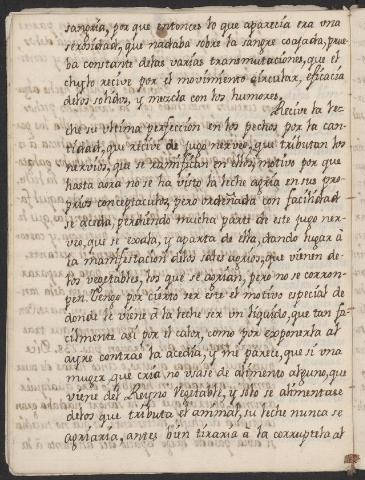 sangria, por que entonces lo que aparecia era una
serosidad, que nadaba sobre la sangre coajada, prue-
ba constante delas varias transmutaciones, que el
chylo recive por el movimiento circular, eficacia
delos solidos, y mezcla con los humores.
Recive la le-
che su ultima perfeccion en los pechos por la can-
tidad, que recive de jugo nerveo, que tributan los
nervios, que se ramifican en ellos, motivo por que
hasta aora no se ha visto la leche agria en sus pro-
prios conceptaculos, pero ordeñada con facilidad
se aceda, perdiendo mucha parte de este jugo ner-
veo, que se exala, y aparta de ella, dando lugar à
la manifestacion delos sales agrios, que vienen de-
los vegetables, los que se agrian, pero no se corrom-
pen. Tengo por cierto ser este el motivo especial de
donde le viene à la leche ser un liquido, que tan fa-
cilmente asi por el calor, como por exponerla al
ayre contrae la acedia, y me parece, que si una
muger que cria no usase de alimento alguno, que
viene del Reyno Vegetable, y solo se alimentase
delos que tributa el animal, su leche nunca se
agriaria, antes bien tiraria à la corruptela al